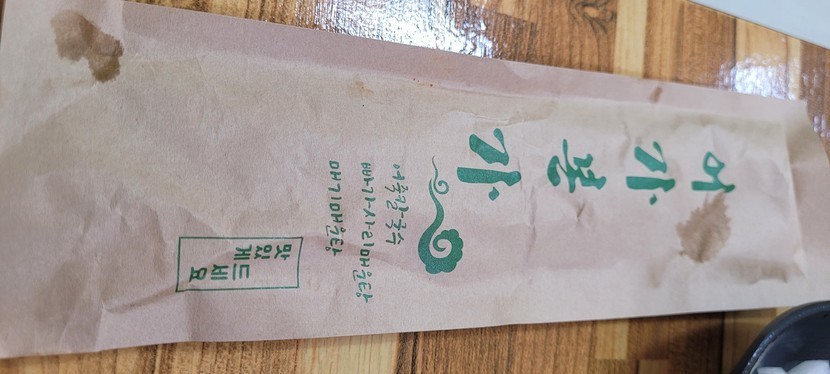 어가본가
어죽칼국수
빠가사리매운탕
매기매운탕
맛있
게드
세요